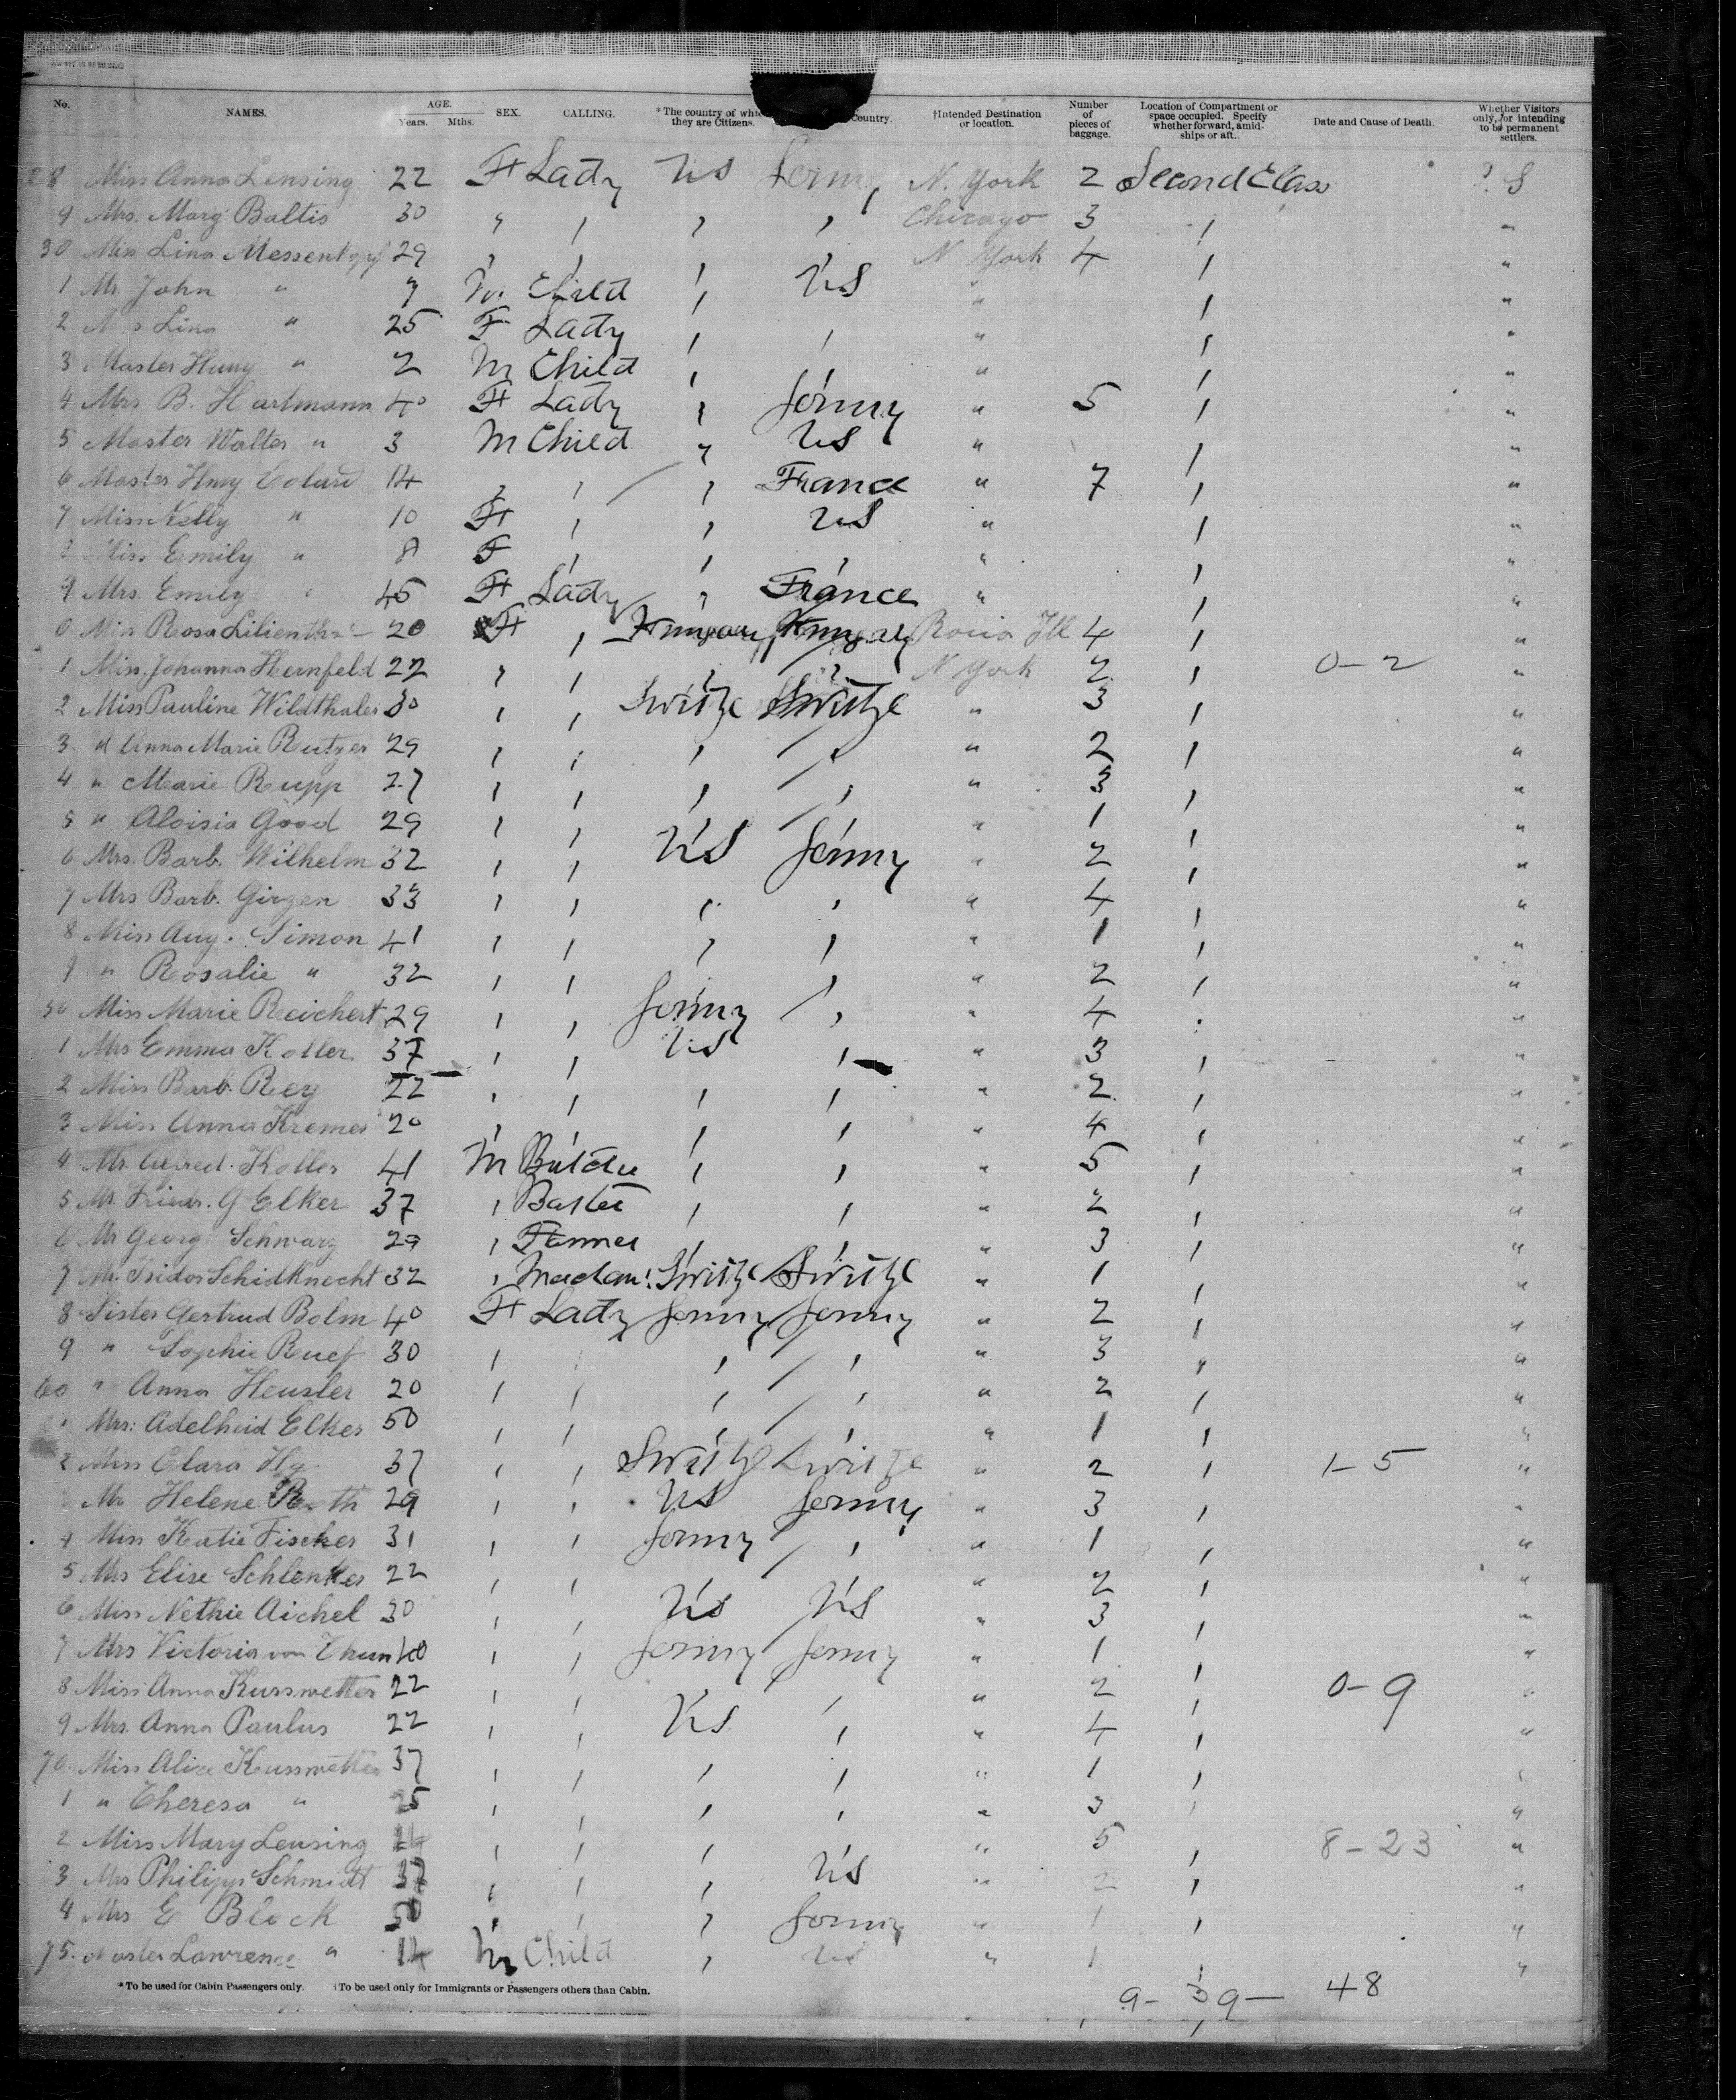 No. NAMES. AGE. Years. Mths. SEX. CALLING. *The country of they are Citizens. Country. †Intended Destination or location. Number of pieces of baggage. Location of Compartment or space occupied. Specify whether forward, amid-ships or aft. Date and Cause of Death. Whether Visitors only, or intending to be permanent settlers.
28 Miss Anna Lensing 22 F Lady US Germy N. York 2 Second Class S
9 Mrs. Marg Baltis 30 " " " " Chicago 3 " "
30 Miss Lina 29 " " " " N York 4 " "
1 Mr. John " 7 M Child " US " " "
2 Lina " 25 F Lady " " " " "
3 Master " 2 M Child " " " " "
4 Mrs B. Hartmann 40 F Lady " Germy " 5 " "
5 Master Walter " 3 M Child " US " " "
6 Master Hnry 14 " " " France " 7 " "
7 Miss Nelly " 10 F " " US " " "
Miss Emily " 8 F " " " " " "
9 Mrs. Emily " 45 F Lady " France " " "
0 Miss Rosa Lilienthal 20 F " Ill 4 " "
1 Miss. Johanna Hernfeld 22 " " " " N York 2 " 0-2 "
2 Miss Pauline Wildthaler 30 " " Switze Switze " 3 " "
3. " Anna Marie Reutzer 29 " " " " " 2 " "
4 " Marie Rupp 27 " " " " " 3 " "
5 " Aloisia Good 29 " " " " " 1 " "
6 Mrs. Barb. Wilhelm 32 " " US Germy " 2 " "
7 Mrs Barb. Girzen 33 " " " " " 4 " "
8 Miss Aug. Simon 41 " " " " " 1 " "
9 " Rosalie " 32 " " " " " 2 " "
50 Miss Marie Reichert 29 " " Germy " " 4 " "
1 Mrs Emma Koller 37 " " US " " 3 " "
2 Miss Barb. Rey 22 " " " " " 2 " "
3 Miss Anna Kremer 20 " " " " " 4 " "
4 Mr. Alfred. Koller 41 M " " " 5 " "
5 Mr. G Elker 37 " " " " 2 " "
6 Mr Georg Schwarz 29 " Farmer " " " 3 " "
7 Mr. Isidor Schidknecht 32 " Switze Switze " 1 " "
8 Sister Gertrud Bolm 40 F Lady Germy Germy " 2 " "
9 " Sophie Ruef 30 " " " " " 3 " "
60 " Anna Heusler 20 " " " " " 2 " "
Mrs: Adelheid Elker 50 " " " " " 1 " "
2 Miss Clara 37 " " Switze Switze " 2 " 1-5 "
Helene Roth 29 " " US Germy " 3 " "
4 Miss Katie Fischer 31 " " Germy " " 1 " "
5 Mrs Elise Schlenker 22 " " " " " 2 " "
6 Miss Nethie Aichel 30 " " US US " 3 " "
7 Mrs Victoria von Thun 40 " " Germy Germy " 1 " "
8 Miss Anna Kusswetter 22 " " " " " 2 " 0-9 "
9 Mrs. Anna Paulus 22 " " US " " 4 " "
70. Miss Alice Kusswetter 37 " " " " " 1 " "
1 " Theresa " 25 " " " " " 3 " "
2 Miss Mary Lensing " " " " " 5 " 8-23 "
3 Mrs Philipp Schmidt 37 " " " US " 2 " "
4 Mrs E Block 50 " " " Germy " 1 " "
75. Master Lawrence " 14 M Child " US " 1 " "
*To be used for Cabin Passengers only. †To be used only for Immigrants or Passengers others than Cabin.
9- 39- 48